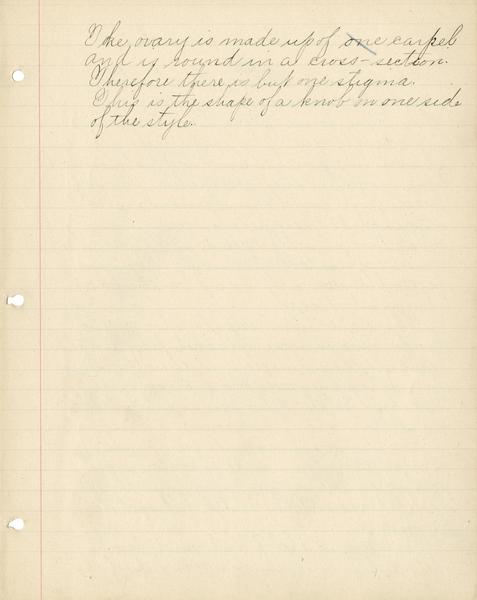 The ovary is made up of one carpel
and is round in a cross-section.
Therefore there is but one stigma.
This is the shape of a knob on one side
of the style.